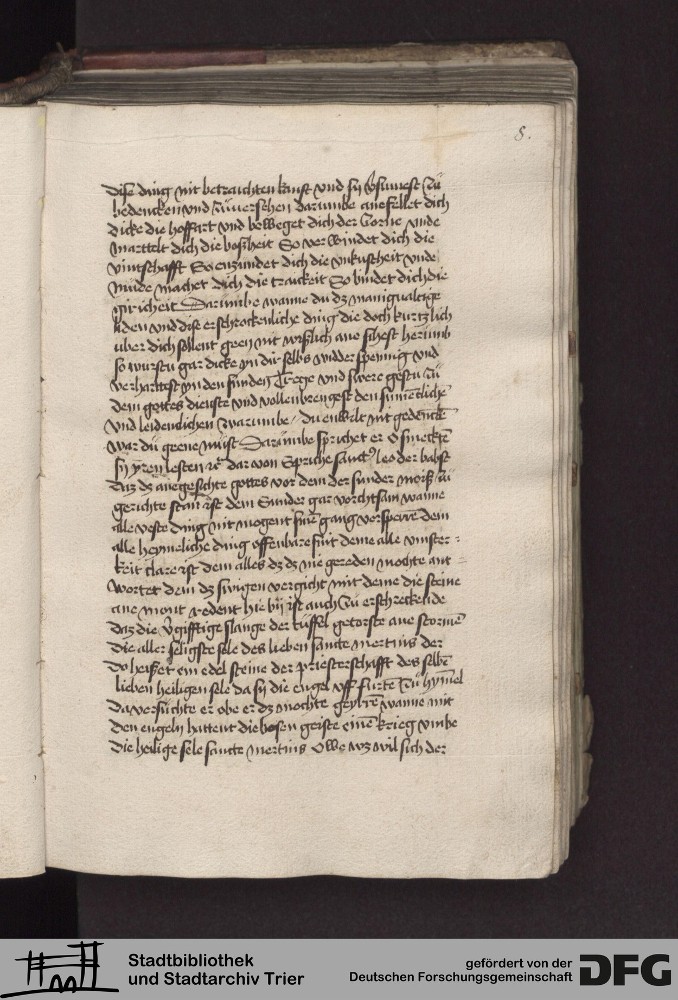 8.
dise ding nit betrachten kanst vnd sy v̈sumest zü
bedencken vnd zü uersehen darumbe anefellet dich
dicke die hoffart vnd beweget dich der zorne vnde
marttelt dich die boßheit So verwindet dich die
vintschafft So enzundet dich die vnkuscheit vnde
müde machet dich die trackeit So bindet dich die
giricheit Darumbe wanne du dz manigualtige
liden vnd dise erschrockenliche ding die doch kurtzlich
uber dich sollent geen nit wißlich ane sihest herumb
so wurstu gar dicke yn dir selbs widder spennig vnd
verharttest yn den sunden Trege vnd swere gestu zü
dem gottes dienste vnd vollenbrengest den
vnd leidenlichen zwarumbe / du enwilt nit gedencken
war dü geene müst Darümbe sprichet er O
sy yren lesten rc̃ dar von Spriche sanctꝰ leo der babst
Daz dz anegesichte gottes vor dem der sunder müß zü
gerichte stan ist dem Sunder gar vorchtsam wanne
alle veste ding nit mogent sine gang versperrē dem
alle heymeliche ding offenbare sint deme alle vinster-
keit clare ist dem alles dz dz nie gereden mochte ant-
wortet dem dz swigen vergicht mit deme die steine
ane mont redent hie bij ist auch zü erschreckende
daz die v̈gifftige slange der tüffel getorste ane stormē
Die aller seligste sele des lieben sancte mertins der
do heisset ein edel steine der priesterschafft des selbē
lieben heiligen sele da sy die engel vff furte zü hymel
da versuchte er obe er dz mochte wanne mit
den engeln hattent die bosen geiste einē krieg vmbe
Die heilige sele sancte mertins Owe wz wil sich der
Stadtbibliothek
und Stadtarchiv Trier
gefördert von der
Deutschen Forschungsgemeinschaft
DFG